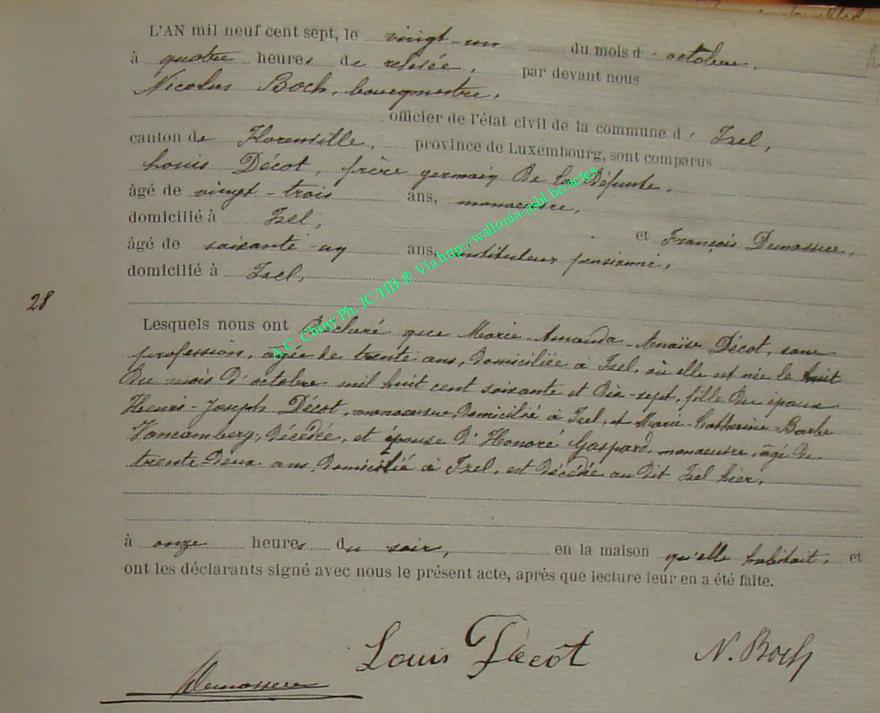 L'AN mil neuf cent sept, le vingt-un du mois d'octobre,
à quatre heures de relevée, par devant nous
Nicolas Boch, bourgmestre,
officier de l'état civil de la commune d'Izel,
canton de Florenville, province de Luxembourg, sont comparus
Louis Décot, frère germain de la défunte,
âgé de vingt-trois ans, manoeuvre,
domicilié à Izel, et François Demasure,
âgé de soixante-un ans, instituteur pensionné,
domicilié à Izel,
28
Lesquels nous ont Déclaré que Marie-Amanda-Anaïse Décot, sans
profession, âgée de trente ans, domiciliée à Izel, où elle est née le huit
du mois d'octobre mil huit cent soixante et dix-sept, fille des époux
Henri-Joseph Décot, manoeuvre domicilié à Izel, et Marie-Catherine-Barbe
Vancamberg, décédée, et épouse d'Honoré Gaspard, manoeuvre, âgé de
trente-deux ans domicilié à Izel, est décédée au dit Izel hier,
à onze heures du soir, en la maison qu'elle habitait, et
ont les déclarants signé avec nous le présent acte, après que lecture leur en a été faite.
Louis Décot N. Boch
A.C. Chiny Ph. JC/HB ® Via http://wallonia-asbl.be/actes